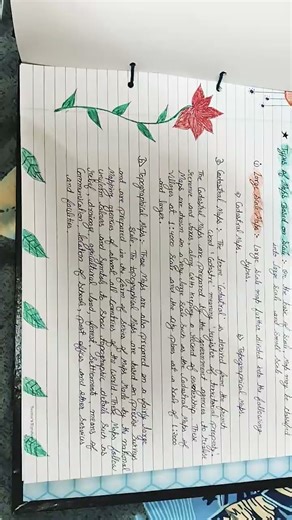 * Types of Maps Based on Scale :- On the basis of scale, map may be classified
into large scale and small scale.
(i) Large Scale Maps :- Large scale map further divided into the following
types.
a) Cadastral Maps    b) Topographical Maps.
a) Cadastral Maps :- The term 'Cadastral' is derived from the french
word 'Cadastre' meaning 'register of territorial property'.
The Cadastral Maps are prepared by the Government agencies to realise
revenue and taxes, along with keeping a record of ownership. These
Maps are drawn on a very large scale, such as the cadastral maps of
village at 1:4000 scale and the city plans at a scale of 1:2000
and larger.
b) Topographical Maps :- These Maps are also prepared on a fairly large
scale. The topographical maps are based on precise surveys
and are prepared in the form of series of maps made by the national
mapping agencies of almost all countries of the world. These Maps follow
uniform colours and symbols to show topographic details such as
relief, drainage, agricultural land, forest, settlements, means of
communication, location of schools, post offices and other services
and facilities.